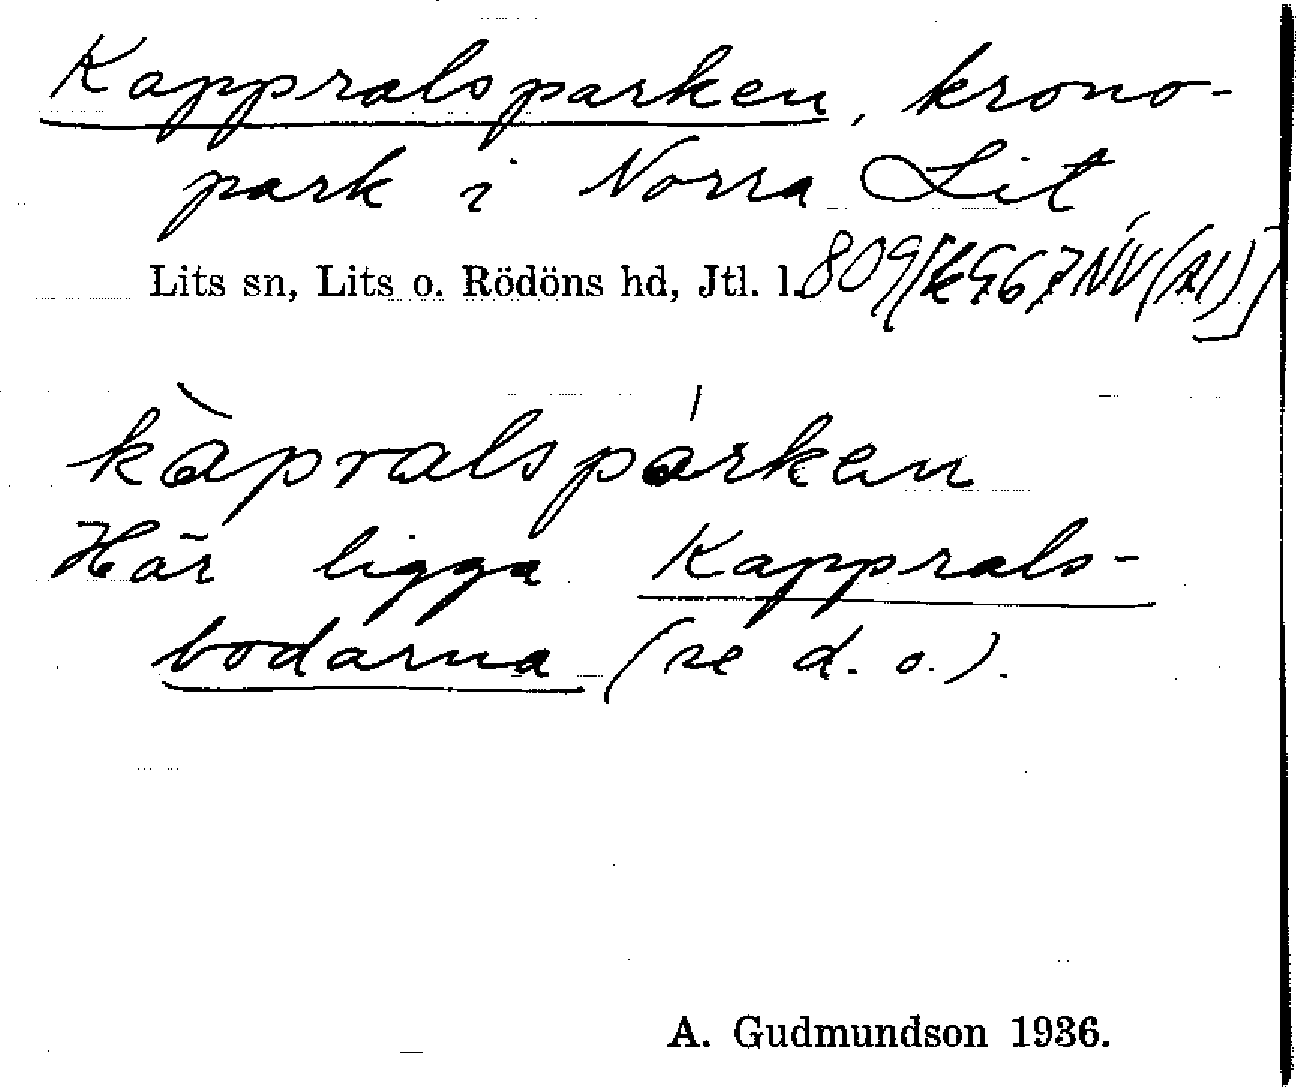 Kappralsparken, krono-
park i Norra Lit
Lits sn, Lits o. Rödöns hd, Jtl. l.
kàpralspárken
Här ligga Kapprals-
bodarna (se d. o.).
A. Gudmundson 1936.